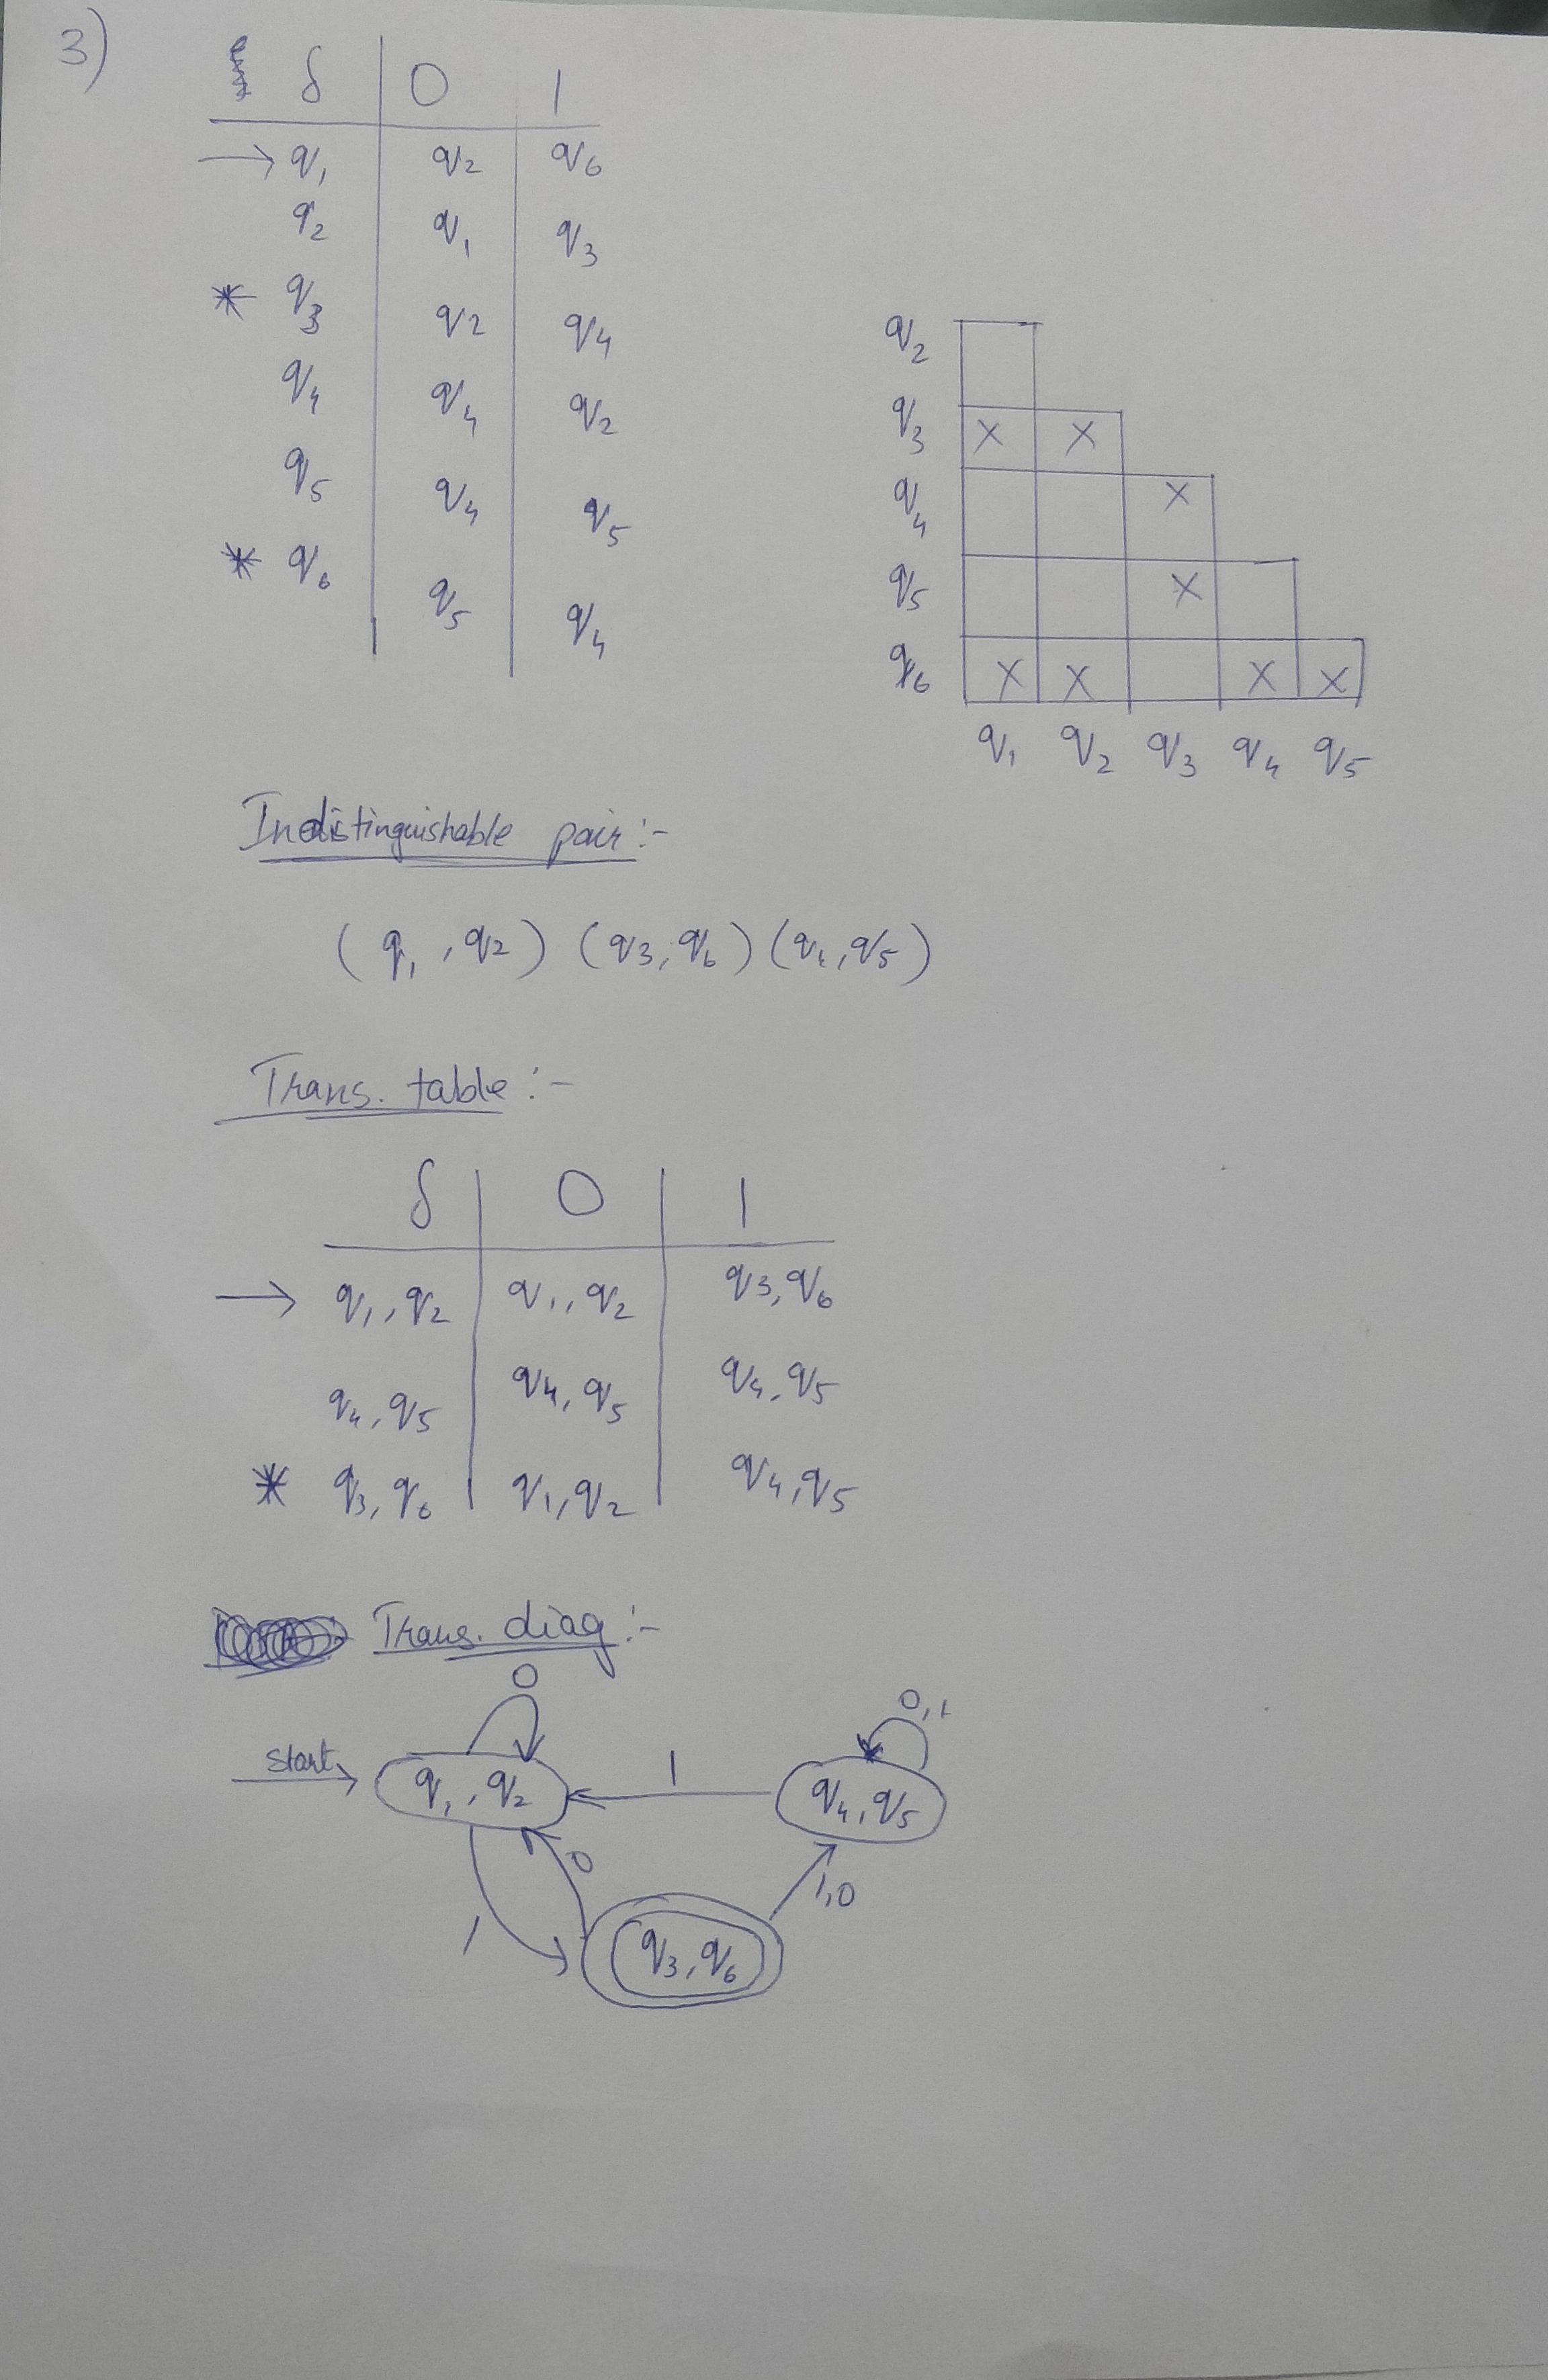 3)
δ 0 1
→ q1 q2 q6
q2 q1 q3
* q3 q2 q4
q4 q4 q2
q5 q4 q5
* q6 q5 q4
q2
q3 X X
q4 X
q5 X
q6 X X X X
q1 q2 q3 q4 q5
Indistinguishable pair:-
(q1, q2) (q3, q6) (q4, q5)
Trans. table:-
δ 0 1
→ q1, q2 q1, q2 q3, q6
q4, q5 q4, q5 q4, q5
* q3, q6 q1, q2 q4, q5
Trans. diag:-
0 0,1
start q1, q2 1 q4, q5
0 1,0
1 q3, q6